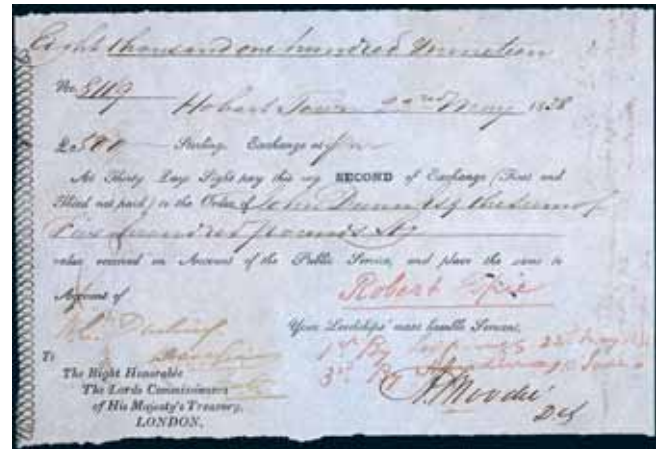 Eight thousand one hundred & nineteen
No. 8119
Hobart Town 22nd May 1838
£500 Sterling. Exchange at
At Thirty Days Sight pay this my SECOND of Exchange (First and
Third not paid) to the Order of John Dunn Esq the sum of
hundred pounds Stg
value received on Account of the Public Service, and place the same to
Account of
Robert
Your Lordships' most humble Servant,
1st By 22d May
3rd By
To
The Right Honorable
The Lords Commissioners
of His Majesty's Treasury,
LONDON,
A. Moodie